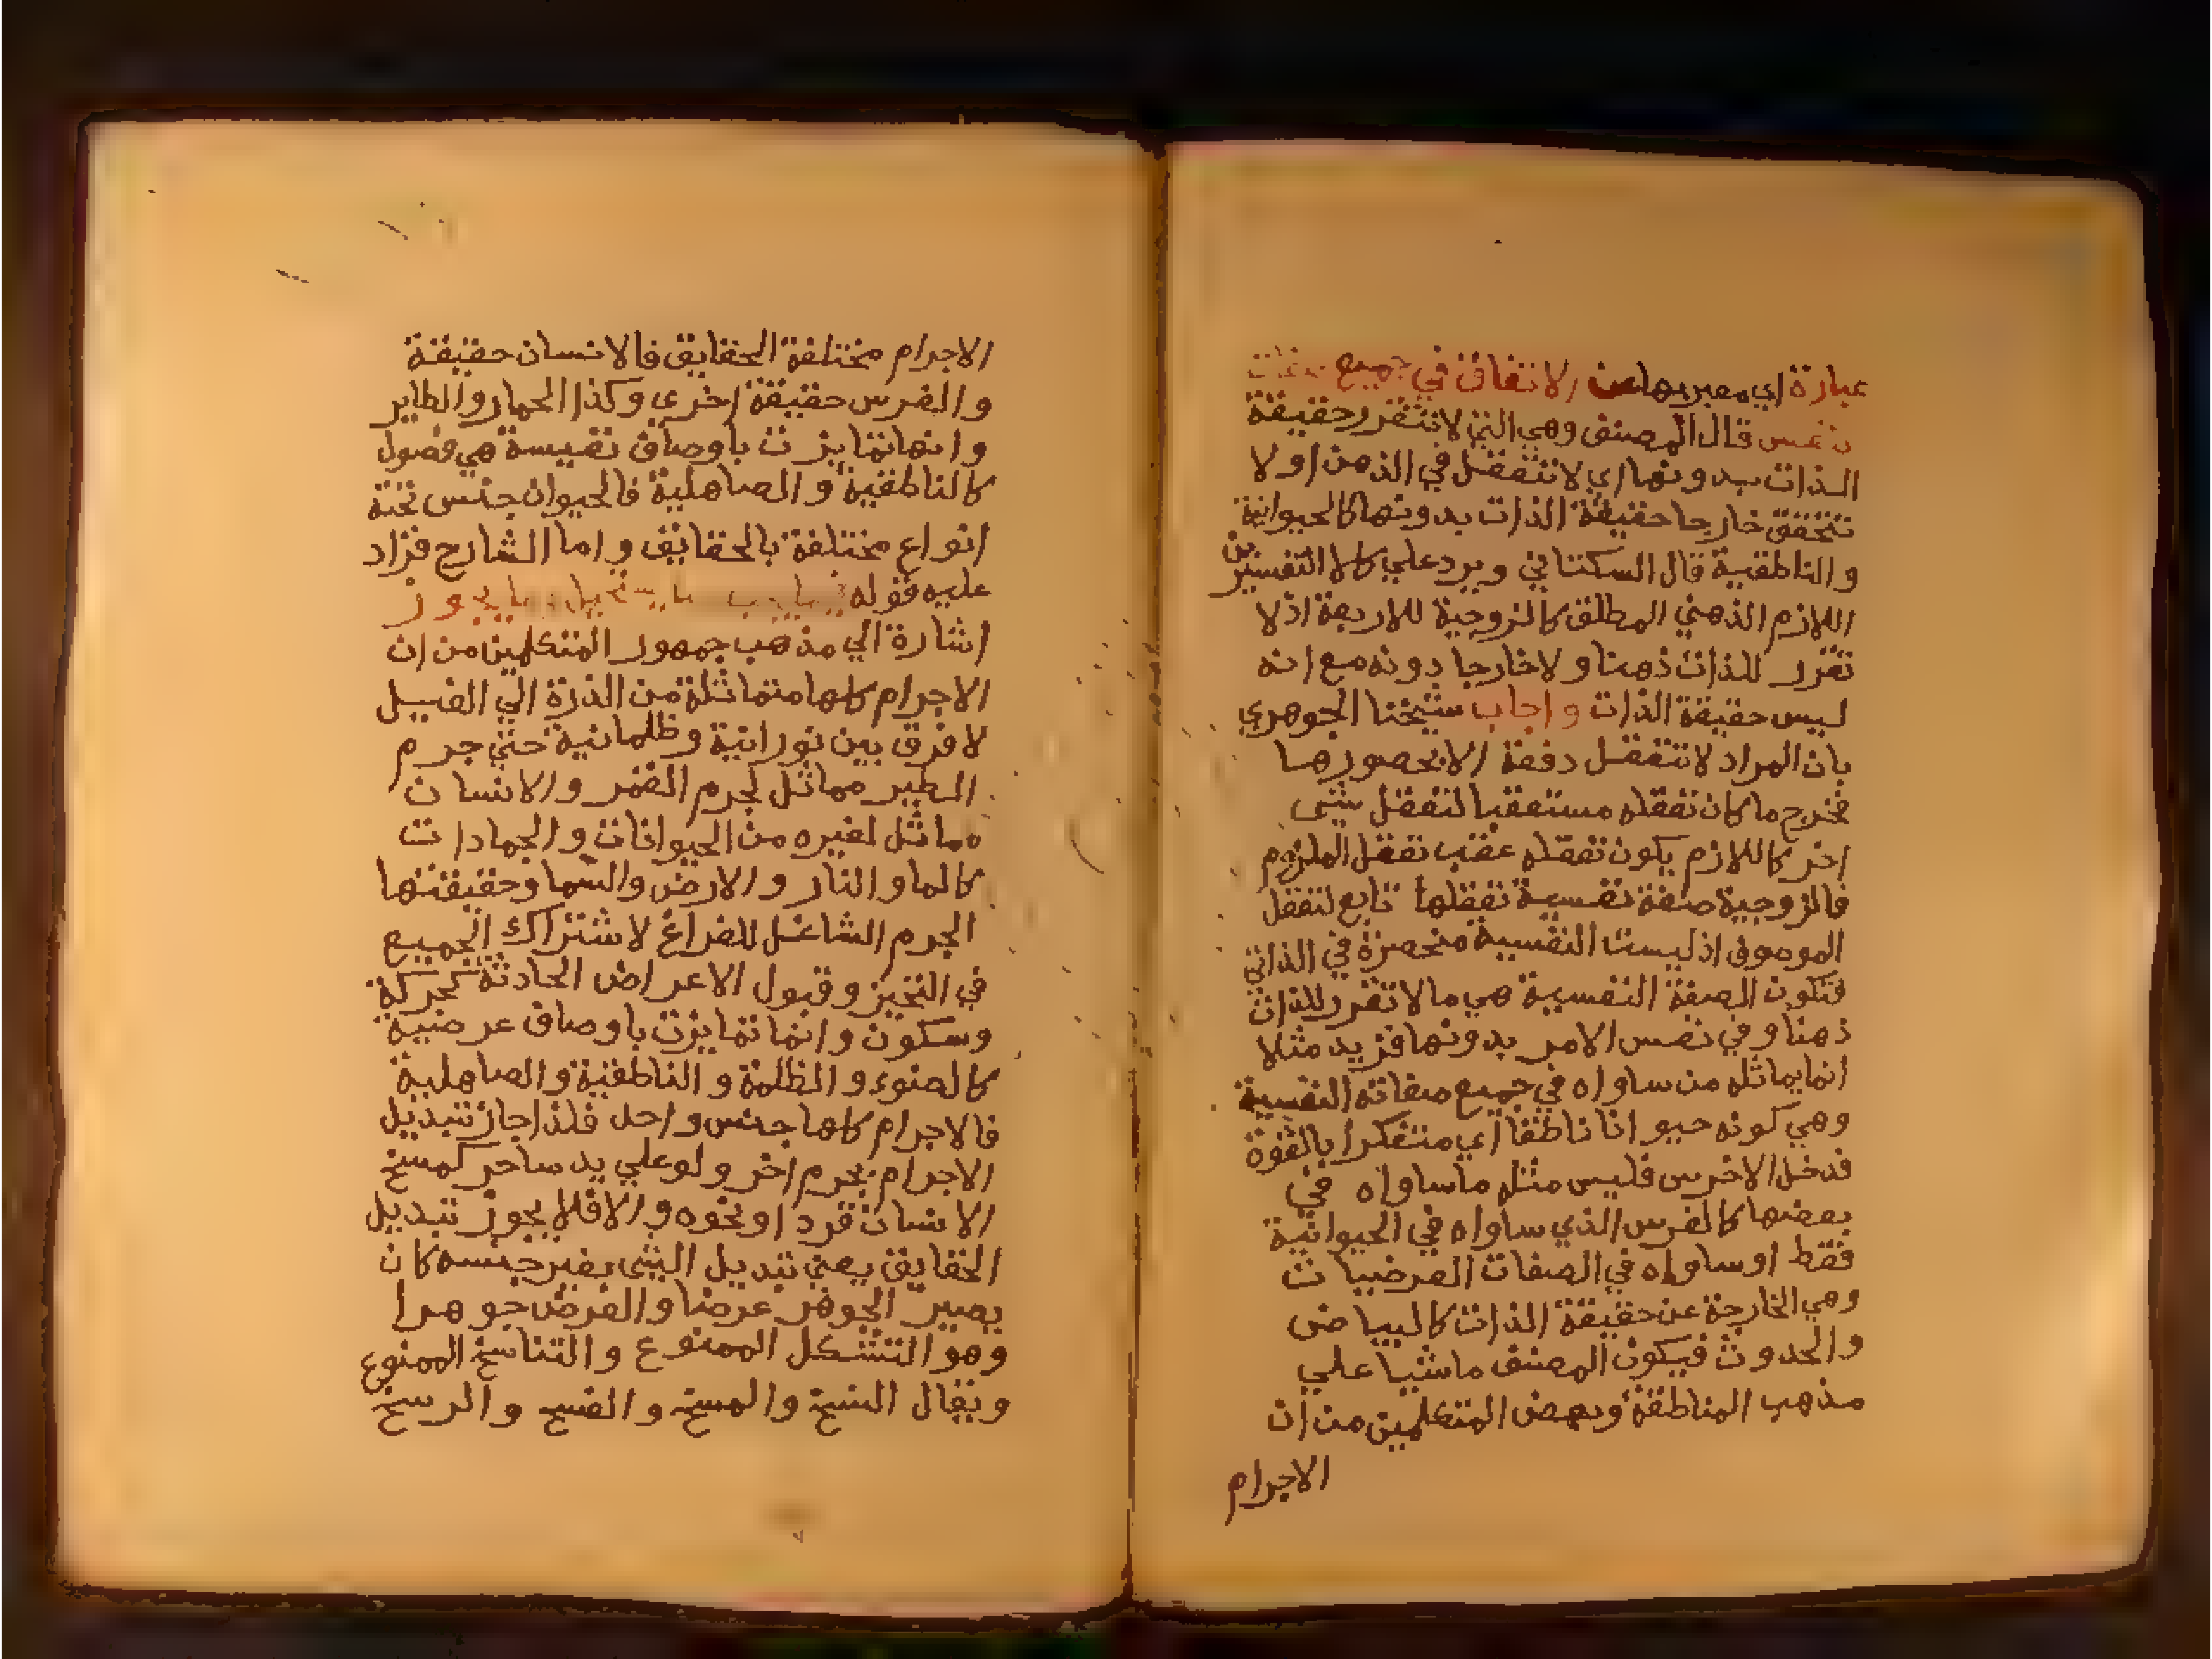 عبارة اي معبر بها عن الاتفاق في جميع صفات
نفس قال المصنف وهي التي لا تتقرر حقيقة
الذات بدونها اي لا تتعقل في الذهن او لا
تتحقق خارجا حقيقة الذات بدونها كالحيوانية
والناطقية قال السكتاني ويرد علي كلا التفسيرين
اللازم الذهني المطلق كالزوجية للاربعة اذ لا
تقرر للذات ذهنا ولا خارجا دونه مع انه
ليس حقيقة الذات واجاب شيخنا الجوهري
بان المراد لا تتعقل دفعة الا بحصورها
فخرج ما كان تعقله مستعقبا لتعقل شي
اخر كاللازم يكون تعقله عقب تعقل الملزوم
فالزوجية صفة نفسية تعقلها تابع لتعقل
الموصوف اذ ليست النفسية منحصرة في الذاتي
فتكون الصفة النفسية هي ما لا تقرر للذات
ذهنا وفي نفس الامر بدونها فزيد مثلا
انما يماثله من ساواه في جميع صفاته النفسية
وهي كونه حيوانا ناطقا اي متفكرا بالقوة
فدخل الاخرس فليس مثله ما ساواه في
بعضها كالفرس الذي ساواه في الحيوانية
فقط او ساواه في الصفات العرضيات
وهي الخارجة عن حقيقة الذات كالبياض
والحدوث فيكون المصنف ماشيا علي
مذهب المناطقة وبعض المتكلمين من ان
الاجرام
الاجرام مختلفة الحقايق فالانسان حقيقة
والفرس حقيقة اخري وكذا الحمار والطاير
وانها تمايزت باوصاف نفيسة هي فصول
كالناطقية والصاهلية فالحيوان جنس تحته
انواع مختلفة بالحقايق واما الشارح فزاد
عليه قوله فيما يجب ما يستحيل وما يجوز
اشارة الي مذهب جمهور المتكلمين من ان
الاجرام كلها متماثلة من الذرة الي الفيل
لا فرق بين نورانية وظلمانية حتي جرم
الطير مماثل لجرم القمر والانسان
مماثل لغيره من الحيوانات والجمادات
كالما والنار والارض والسما وحقيقتها
الجرم الشاغل للفراغ لاشتراك الجميع
في التحيز وقبول الاعراض الحادثة كحركة
وسكون وانما تمايزت باوصاف عرضية
كالضوء والظلمة والناطقية والصاهلية
فالاجرام كلها جنس واحد فلذا جاز تبديل
الاجرام بجرم اخر ولو علي يد ساحر كمسخ
الانسان قرد او نحوه والا فلا يجوز تبديل
الحقايق يعني تبديل الشي بغير جنسه كان
يصير الجوهر عرضا والعرض جوهرا
وهو التشكل الممنوع والتناسخ الممنوع
ويقال النسخ والمسخ والفسخ والرسخ